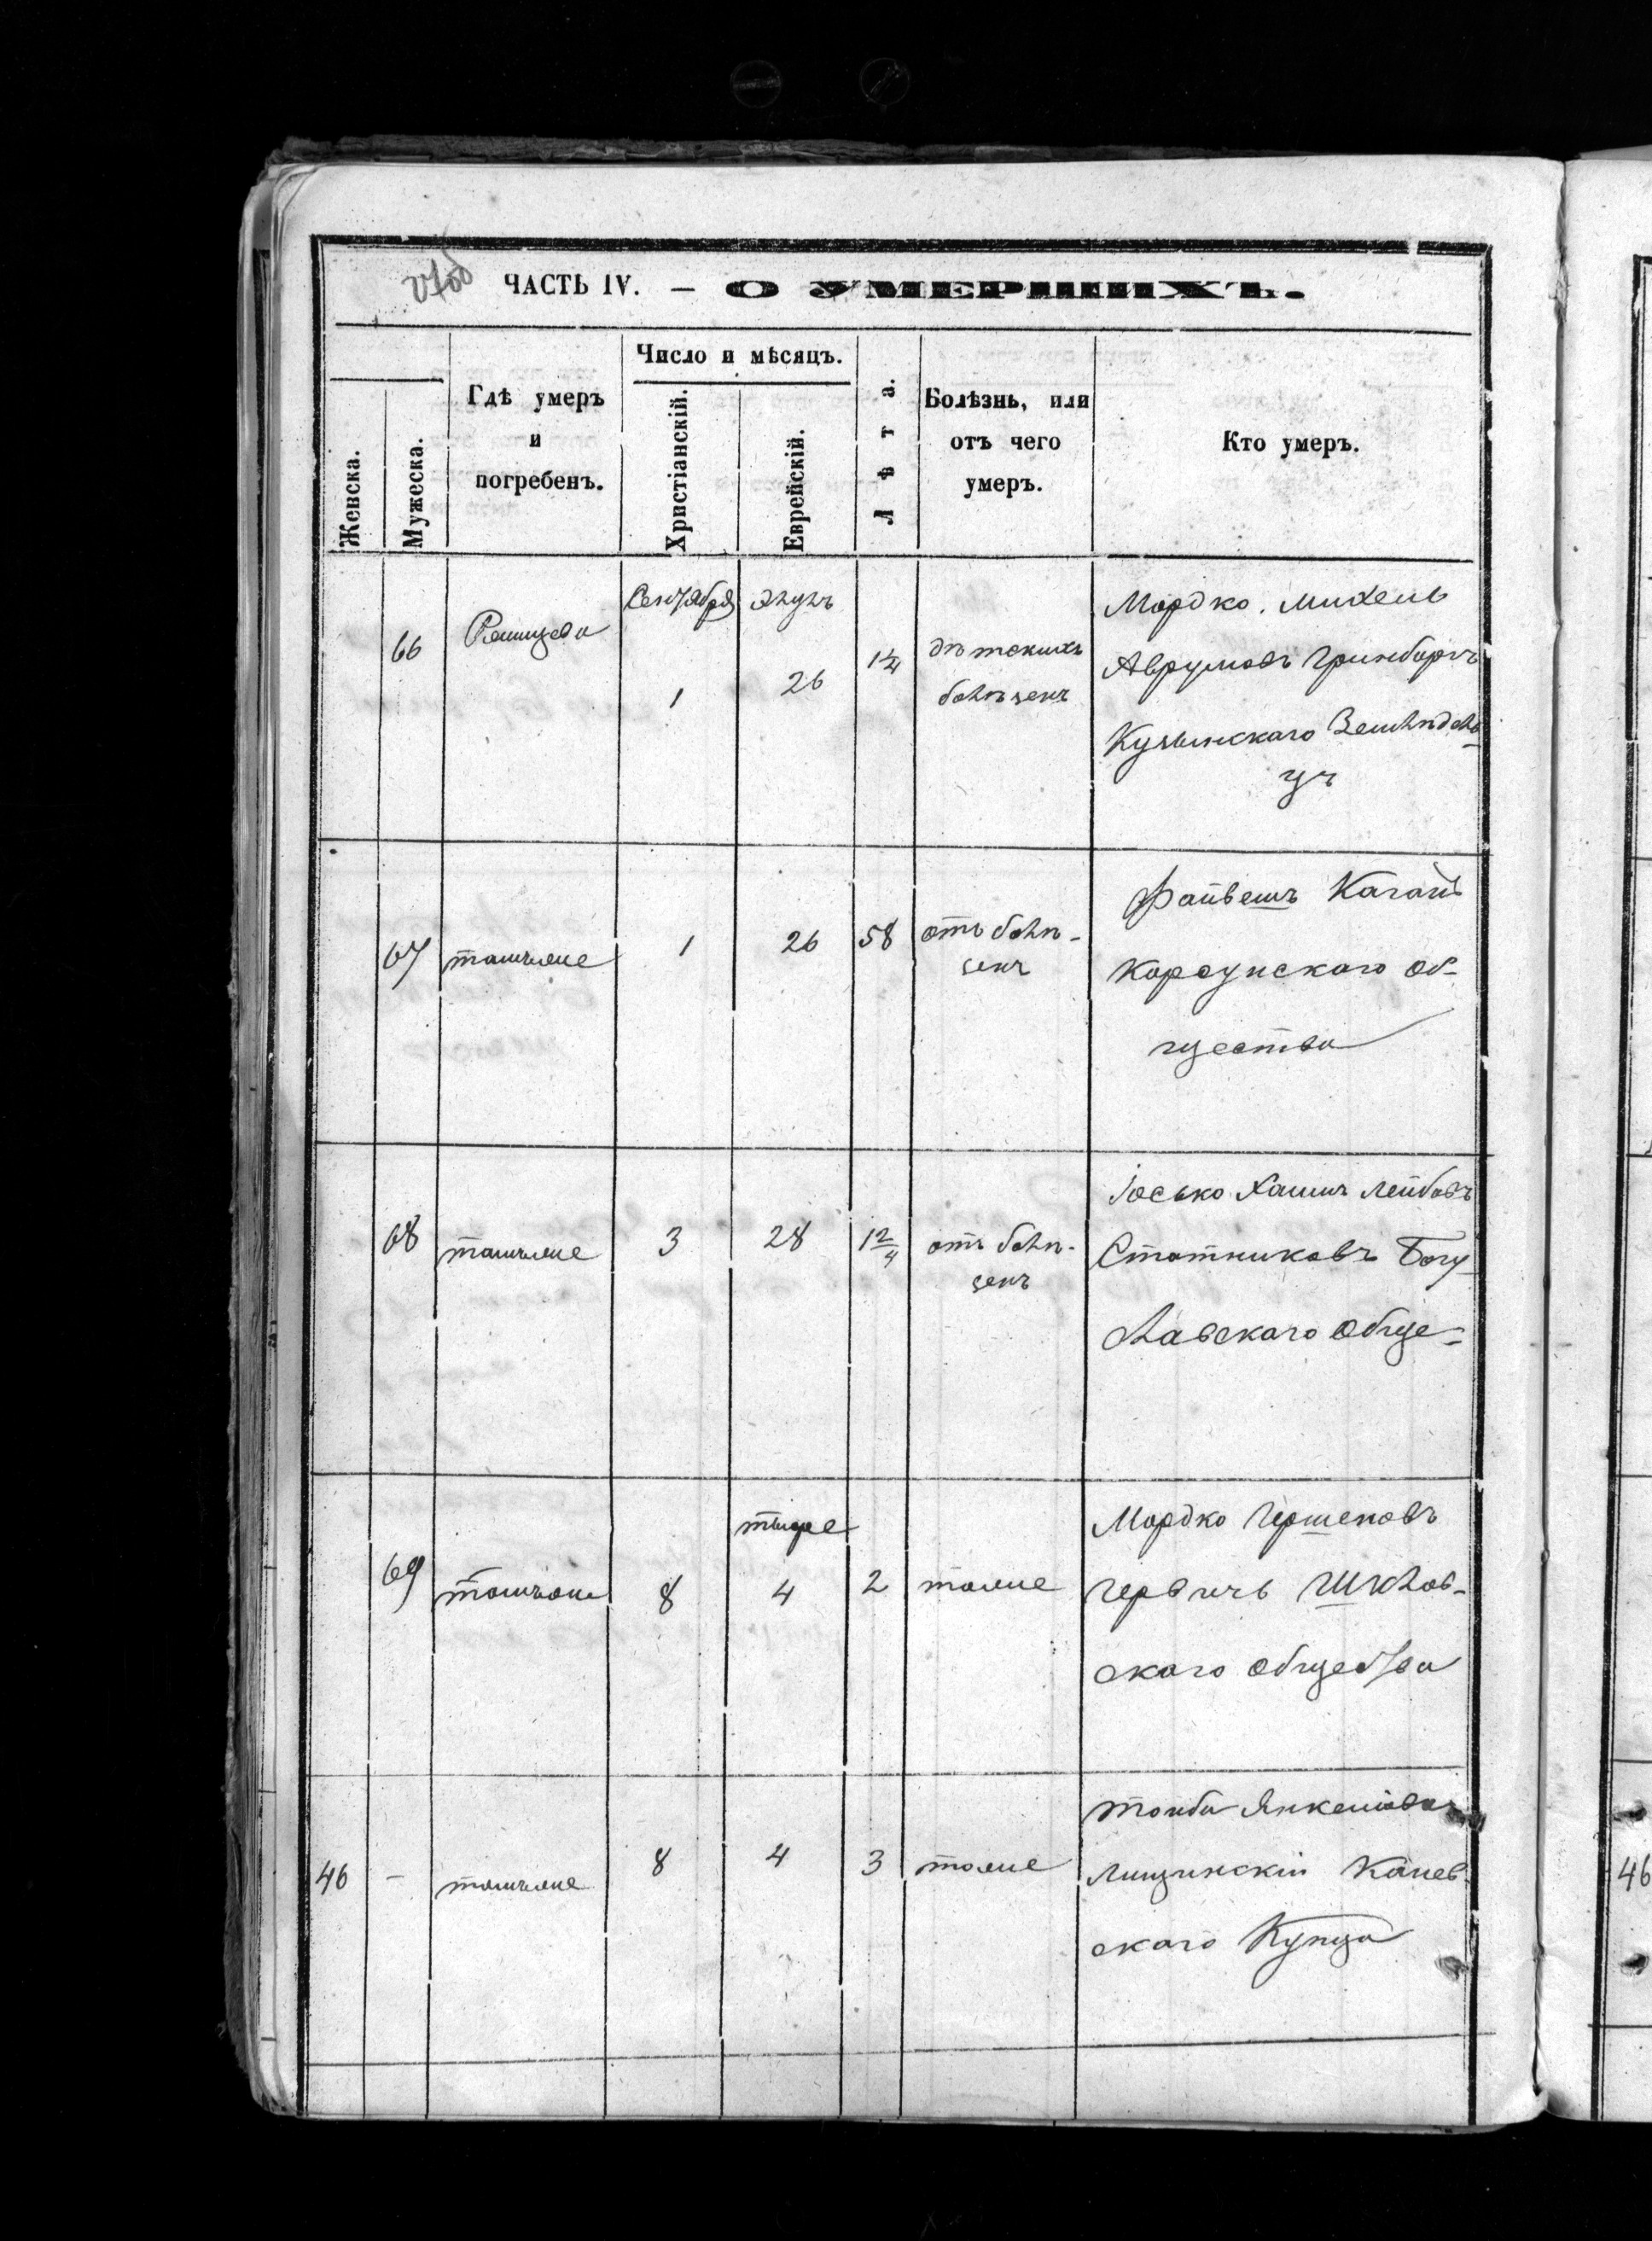 ЧАСТЬ IV. — О УМЕРШИХЪ.
Женска.
Мужеска.
Гдѣ умеръ
и
погребенъ.
Число и мѣсяцъ.
Христіанскій.
Еврейскій.
Лѣта.
Болѣзнь, или
отъ чего
умеръ.
Кто умеръ.
66
Ржищева
Сентября
1
Элулъ
26
1 1/4
дѣтскихъ
болѣзен
Мордко. Михель
Аврумовъ Гринбергъ
Земледель-
цъ
67
тамже
1
26
58
отъ болѣ-
зен
Файвешъ Каган
Корсунскаго об-
щества
68
тамже
3
28
1 2/4
отъ болѣ-
зен
Іосько Хаимъ Лейбовъ
Статниковъ Богу-
славскаго обще-
69
тамже
8
тишре
4
2
тоже
Мордко Гершековъ
Шклов-
скаго общества
46
-
тамже
8
4
3
тоже
Тойба Янкелева
Лищинскій Канев-
скаго Купца
46